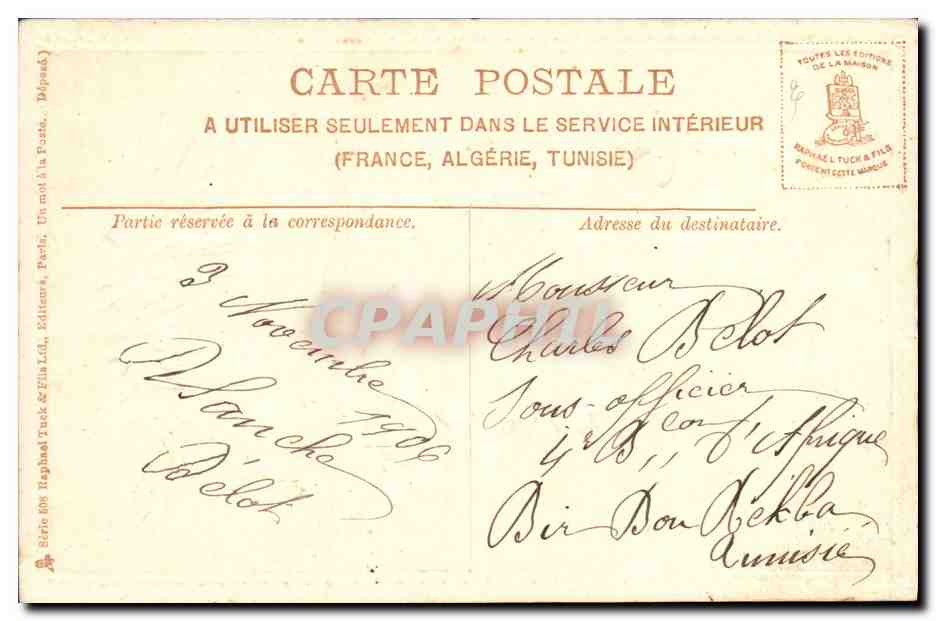 CARTE POSTALE
A UTILISER SEULEMENT DANS LE SERVICE INTÉRIEUR
(FRANCE, ALGÉRIE, TUNISIE)
TOUTES LES ÉDITIONS
DE LA MAISON
RAPHAEL TUCK & FILS
PORTENT CETTE MARQUE
Partie réservée à la correspondance.
3 Novembre 1906
Blanche
Bélot
Adresse du destinataire.
Monsieur
Charles Belot
Sous-officier
4e Bon d'Afrique
Bir Bou Rekba
Tunisie
Série 508 Raphael Tuck & Fils Ltd., Editeurs, Paris. Un mot à la Poste. Déposé.)
CPAPHIL